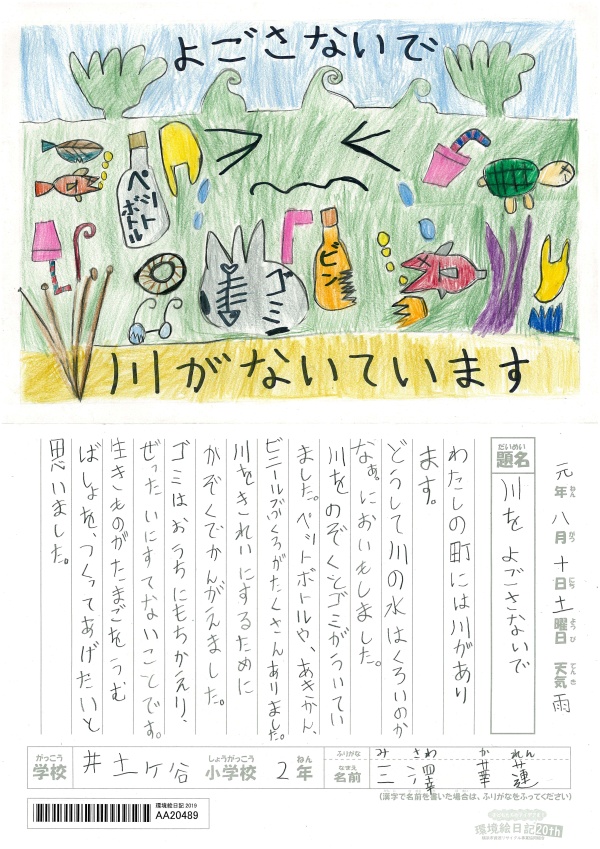 よごさないで
ペット
ボトル
ゴミ
ビン
川がないています
元年八月十日土曜日 天気雨
ねん がつ にち ようび てんき
だいめい
題名 川を よごさないで
わたしの町には川があり
ます。
どうして川の水はくろいのか
なぁ。においもしました。
川をのぞくとゴミがういてい
ました。ペットボトルや、あきかん、
ビニールぶくろがたくさんありました。
川をきれいにするために
かぞくでかんがえました。
ゴミはおうちにもちかえり、
ぜったいにすてないことです。
生きものがたまごをうむ
ばしょを、つくってあげたいと
思いました。
がっこう しょうがっこう ねん
学校 井土ヶ谷 小学校 2年
ふりがな みさわ かれん
なまえ
名前 三澤 華蓮
(漢字で名前を書いた場合は、ふりがなをふってください)
環境絵日記 2019
AA20489
環境絵日記20th